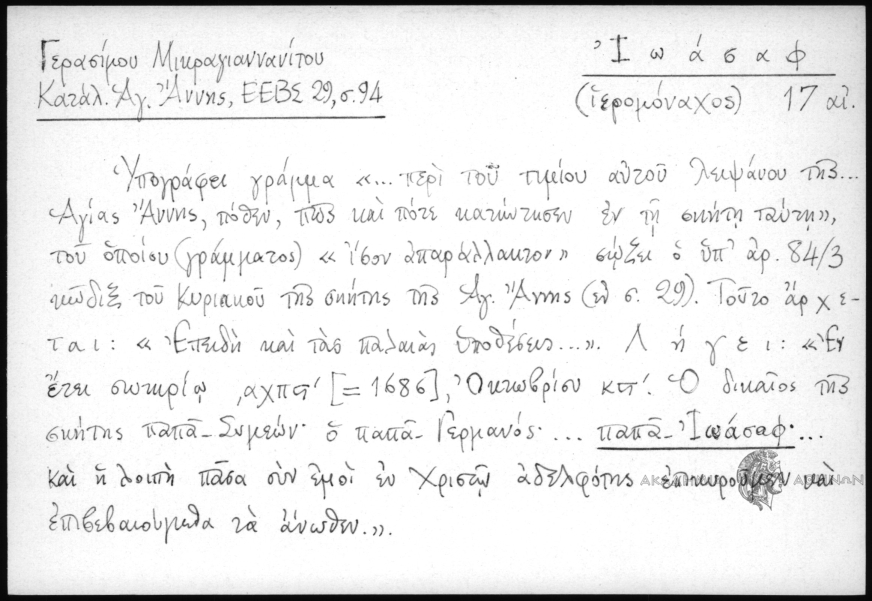 Γερασίμου Μικραγιαννανίτου
Κατάλ. Ἁγ. Ἄννης, ΕΕΒΣ 29, σ. 94
Ἰωάσαφ
(ἱερομόναχος) 17 αἰ.
Ὑπογράφει γράμμα «... περὶ τοῦ τιμίου αὐτοῦ λειψάνου τῆς...
Ἁγίας Ἄννης, πόθεν, πῶς καὶ πότε κατήντησεν ἐν τῇ σκήτῃ ταύτῃ»,
τοῦ ὁποίου (γράμματος) «ἴσον ἀπαράλλακτον» σῴζει ὁ ὑπ' ἀρ. 84/3
κῶδιξ τοῦ Κυριακοῦ τῆς σκήτης τῆς Ἁγ. Ἄννης (ἐν σ. 29). Τοῦτο ἄρχε-
ται: « Ἐπειδὴ καὶ τὰς παλαιὰς ὑποθέσεις...». Λήγει: «Ἐν
ἔτει σωτηρίῳ ͵αχπϛ' [= 1686], Ὀκτωβρίου κϛ'. Ὁ δικαῖος τῆς
σκήτης παπᾶ-Συμεών· ὁ παπᾶ-Γερμανός· ... παπᾶ-Ἰωάσαφ· ...
καὶ ἡ λοιπὴ πᾶσα σὺν ἐμοὶ ἐν Χριστῷ ἀδελφότης ἐπικυροῦμεν καὶ
ἐπιβεβαιούμεθα τὰ ἄνωθεν.».